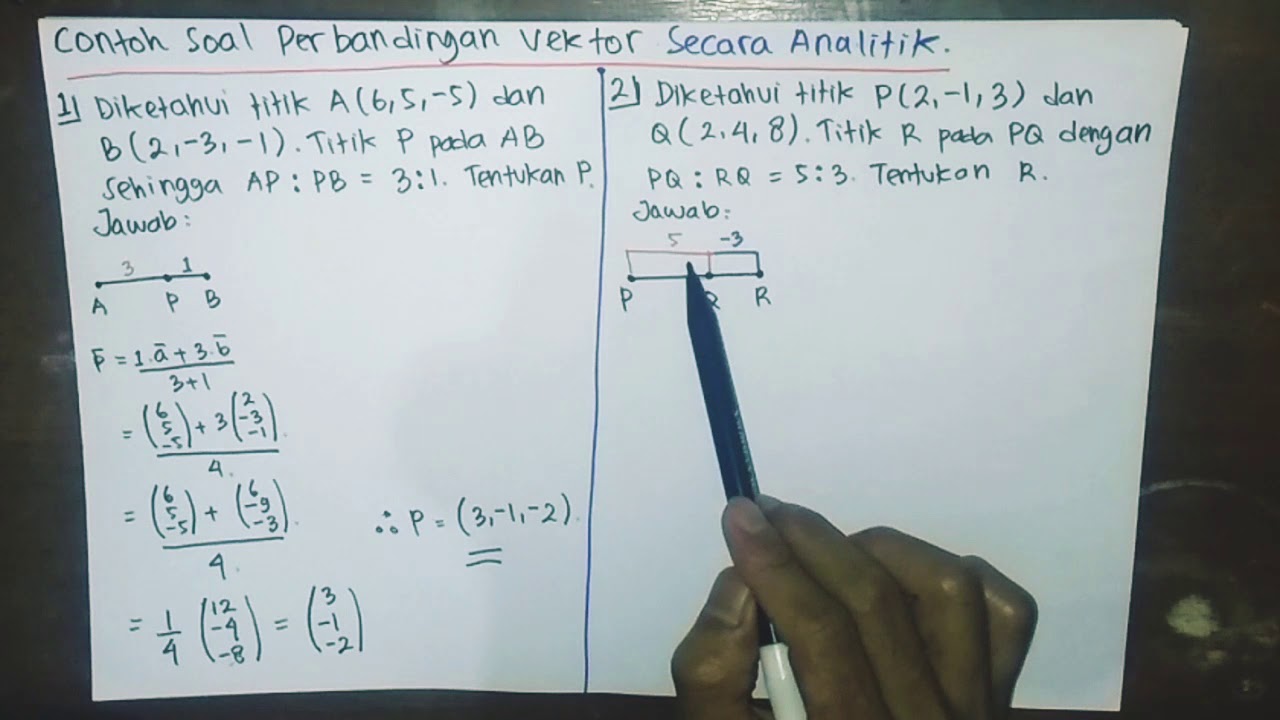 Contoh Soal Perbandingan Vektor Secara Analitik.
1) Diketahui titik A(6,5,-5) dan
B(2,-3,-1). Titik P pada AB
sehingga AP : PB = 3:1. Tentukan P.
Jawab:
3 1
A P B
p̄ = 1.ā + 3.b̄
3+1
= (6 5 -5) + 3(2 -3 -1)
4.
= (6 5 -5) + (6 -9 -3)
4.
= 1/4 (12 -4 -8) = (3 -1 -2)
∴ P = (3,-1,-2).
2) Diketahui titik P(2,-1,3) dan
Q(2,4,8). Titik R pada PQ dengan
PQ : RQ = 5:3. Tentukan R.
Jawab:
5 -3
P Q R